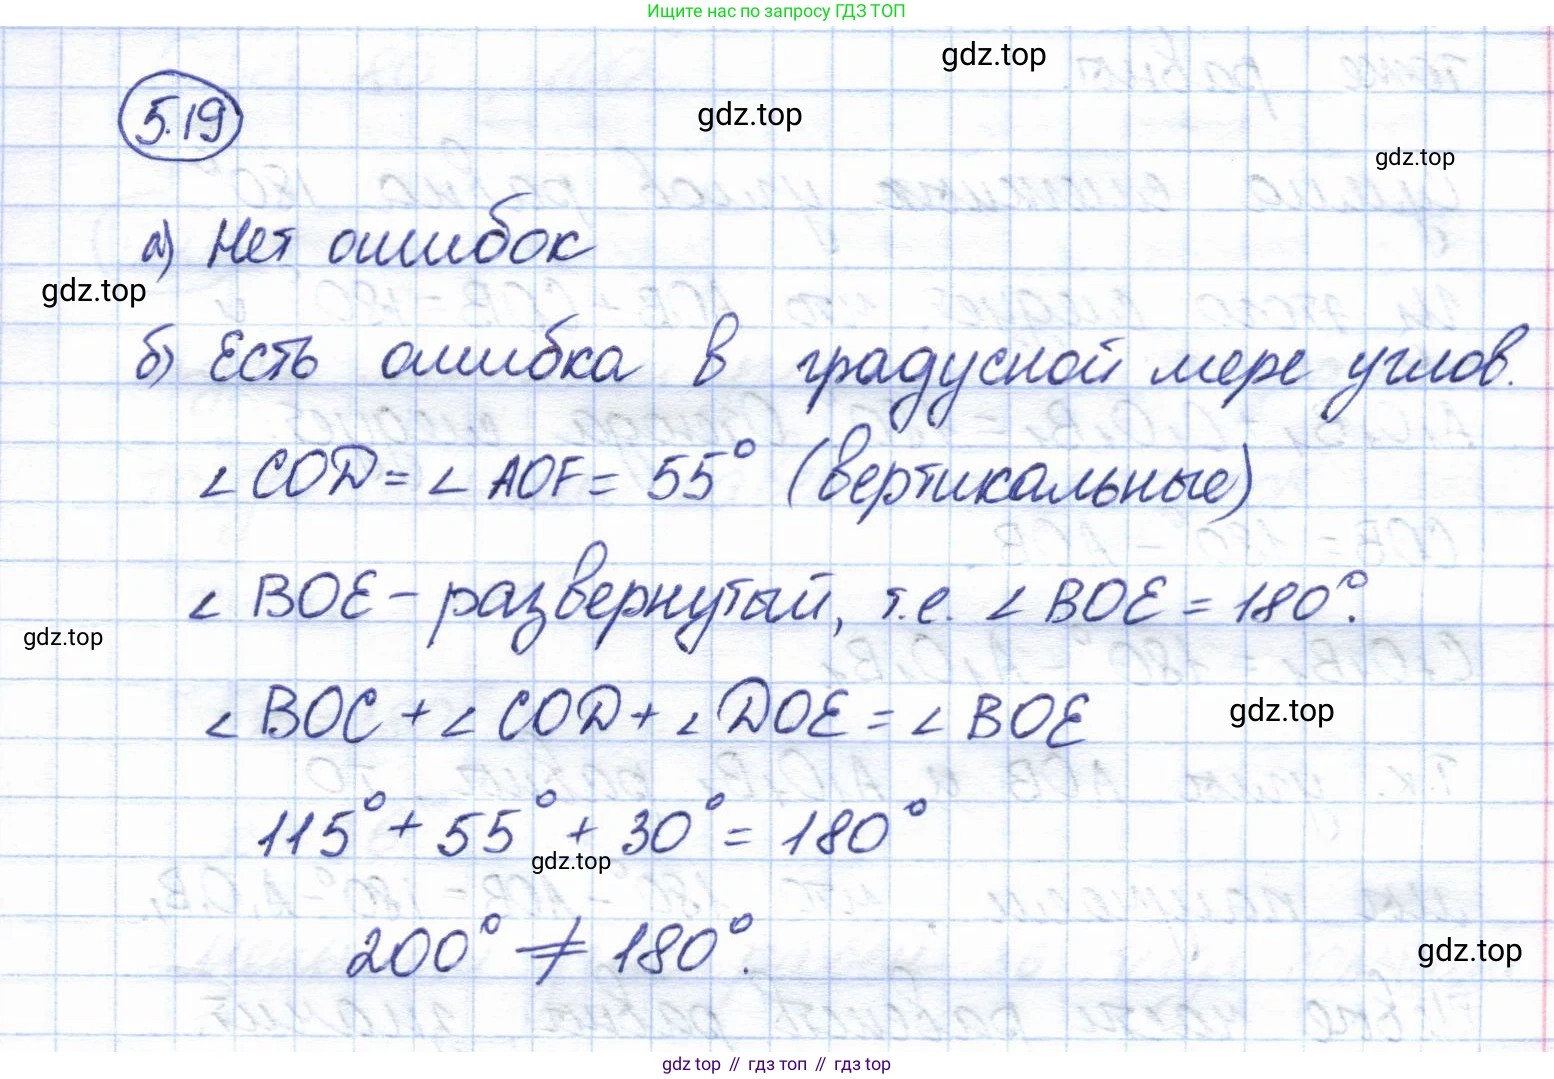 Ищите нас по запросу ГДЗ ТОП
gdz.top
gdz.top
5.19
gdz.top
а) Нет ошибок
gdz.top
б) Есть ошибка в градусной мере углов.
∠ COD = ∠ AOF = 55° (вертикальные)
∠ BOE - развернутый, т.е. ∠ BOE = 180°.
gdz.top
∠ BOC + ∠ COD + ∠ DOE = ∠ BOE
gdz.top
115° + 55° + 30° = 180°
gdz.top
200° ≠ 180°.
gdz.top
gdz top // гдз топ // gdz top